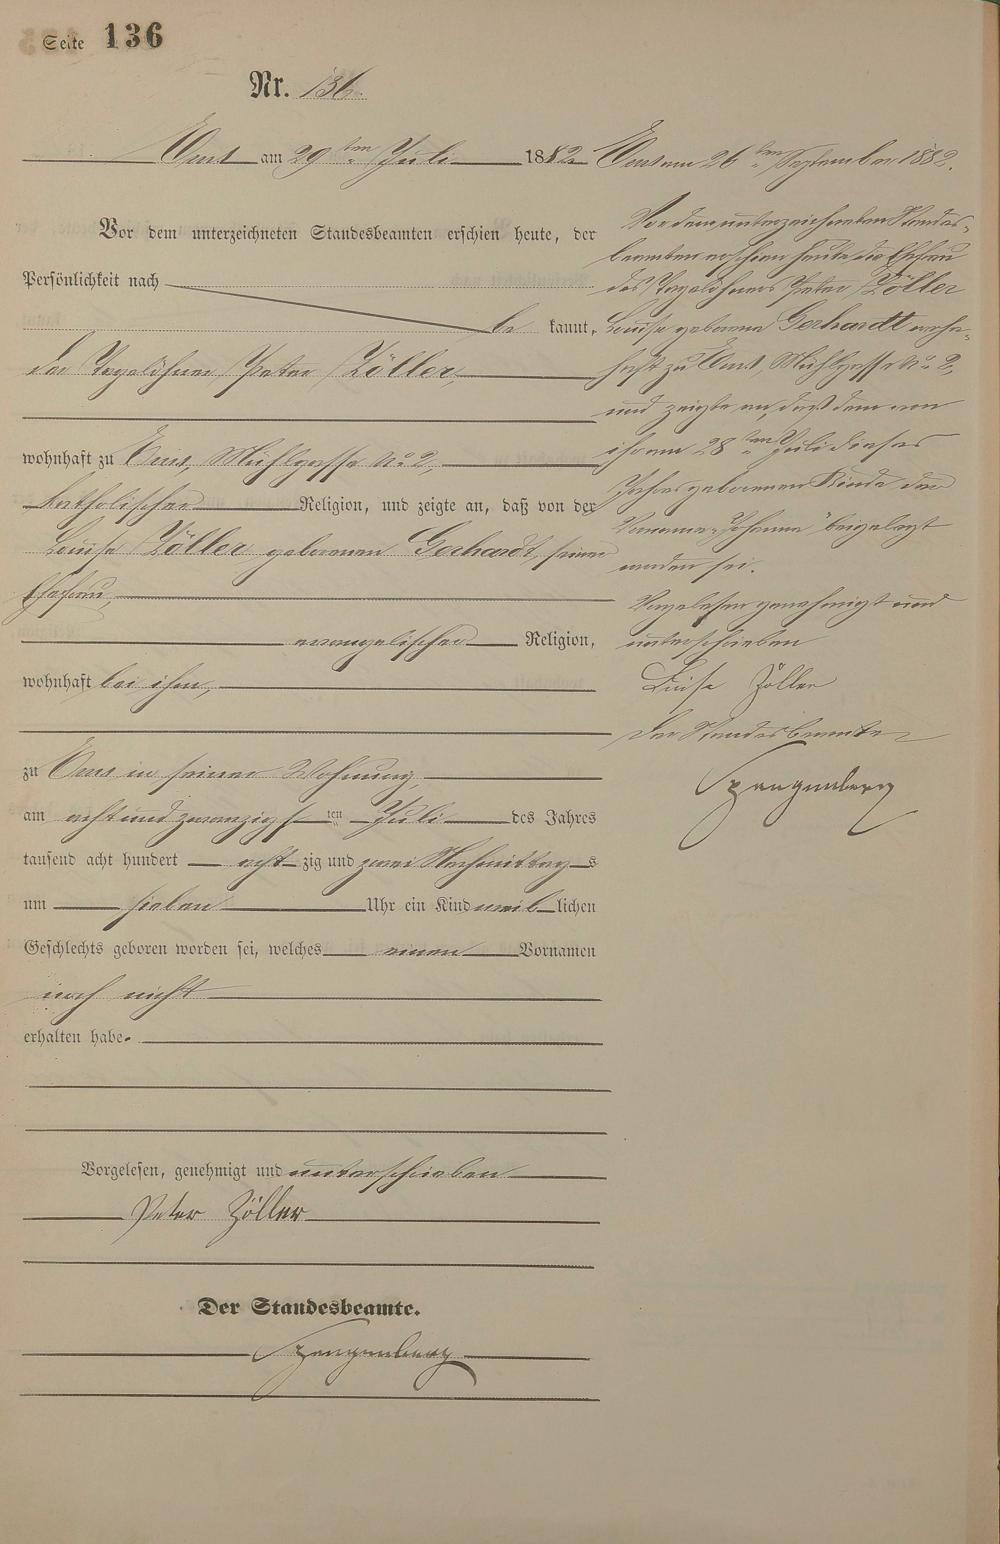 Seite 136
Nr. 136.
Ems am 29ten Juli 1882
Vor dem unterzeichneten Standesbeamten erschien heute, der
Persönlichkeit nach
be kannt,
der Tagelöhner Peter Zöller,
wohnhaft zu Ems, Mühlgasse No 2,
katholischer Religion, und zeigte an, daß von der
Louise Zöller geborenen Gerhardt, seiner
Ehefrau,
evangelischer Religion,
wohnhaft bei ihm,
zu Ems in seiner Wohnung,
am acht und zwanzigsten Juli des Jahres
tausend acht hundert achtzig und zwei Nachmittags
um sieben Uhr ein Kind weiblichen
Geschlechts geboren worden sei, welches einen Vornamen
noch nicht
erhalten habe.
Vorgelesen, genehmigt und unterschrieben
Peter Zöller
Der Standesbeamte.
Spangenberg
Ems am 26ten September 1882.
Vor dem unterzeichneten Standes-
beamten erschien heute die Ehefrau
des Tagelöhners Peter Zöller
Louise geborene Gerhardt wohn-
haft zu Ems, Mühlgasse No 2,
und zeigte an, daß dem von
ihr am 28ten Juli dieses
Jahres geborenen Kinde der
Vorname "Johanna" beigelegt
worden sei.
Vorgelesen genehmigt und
unterschrieben
Luise Zöller
Der Standesbeamte
Spangenberg